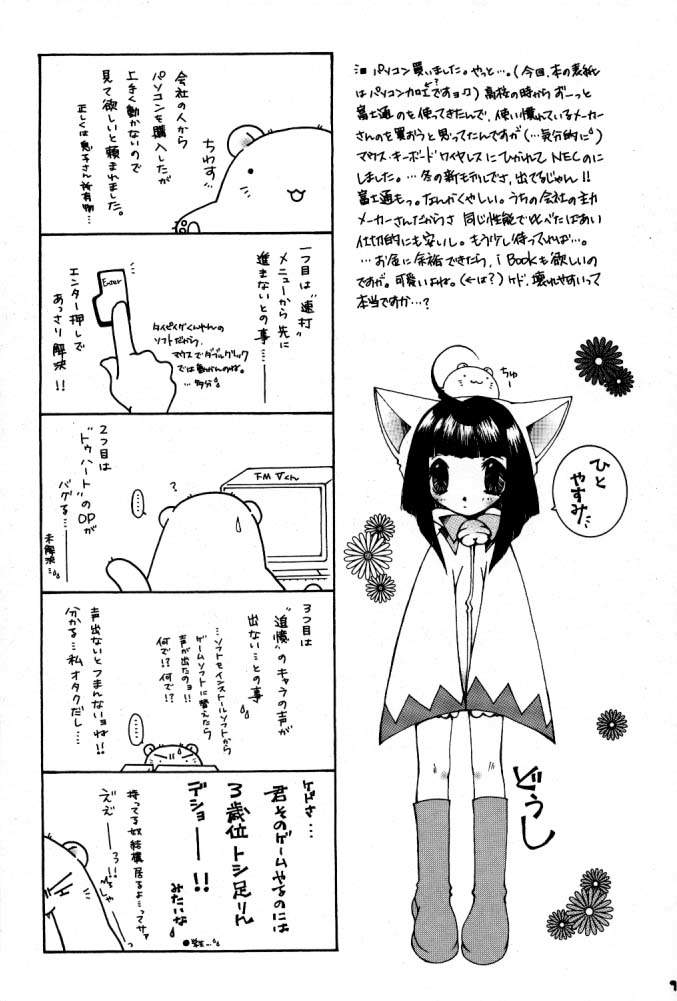 パソコン買いました。やっと…。(今回、本の表紙
はパソコン加工ですョ♪)高校の時からずーっと
富士通のを使ってきたんで、使い慣れているメーカー
さんのを買おうと思ってたんですが(…気分的に)
マウス・キーボードワイヤレスにひかれて NECのに
しました。…冬の新モデルでさ、出てるじゃん!!
富士通もっ。なんかくやしい。うちの会社の主力
メーカーさんだからさ 同じ性能で比べたばあい
仕切的にも安いし。もう少し待ってれば…。
…お金に余裕できたら、i Bookも欲しいの
ですが。可愛いよね。(←は?)ケド、壊れやすいって
本当ですか…?
ちゅー
ひと
やすみ
どうし
会社の人から
パソコンを購入したが
上手く動かないので
見て欲しいと頼まれました。
正しくは息子さん所有物…
ちわす…
一つ目は"連打"
メニューから先に
進まないとの事…
Enter
タイピングくんやんの
ソフトだから、
マウスでダブルクリック
では動かんのね。
…多分
エンター押しで
あっさり解決!!
2つ目は
"トゥハート"のOPが
バグる…
未解決…
……
?
FMVくん
3つ目は
"追憶"のキャラの声が
出ない…との事
…ソフトをインストールソフトから
ゲームソフトに替えたら
声が出たのョ!!
何で!?何で!?
声出ないとつまんないョね!!
分かる…私オタクだし…
……
ケドさ…
君そのゲームやるのには
3歳位トシ足りん
デショ――!!
みたいな
持ってる奴結構居るよーってサァ
ええ――っ!!